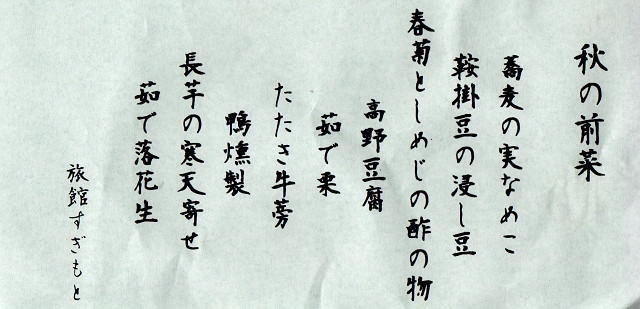 秋の前菜
蕎麦の実なめこ
鞍掛豆の浸し豆
春菊としめじの酢の物
高野豆腐
茹で栗
たたき牛蒡
鴨燻製
長芋の寒天寄せ
茹で落花生
旅館すぎもと